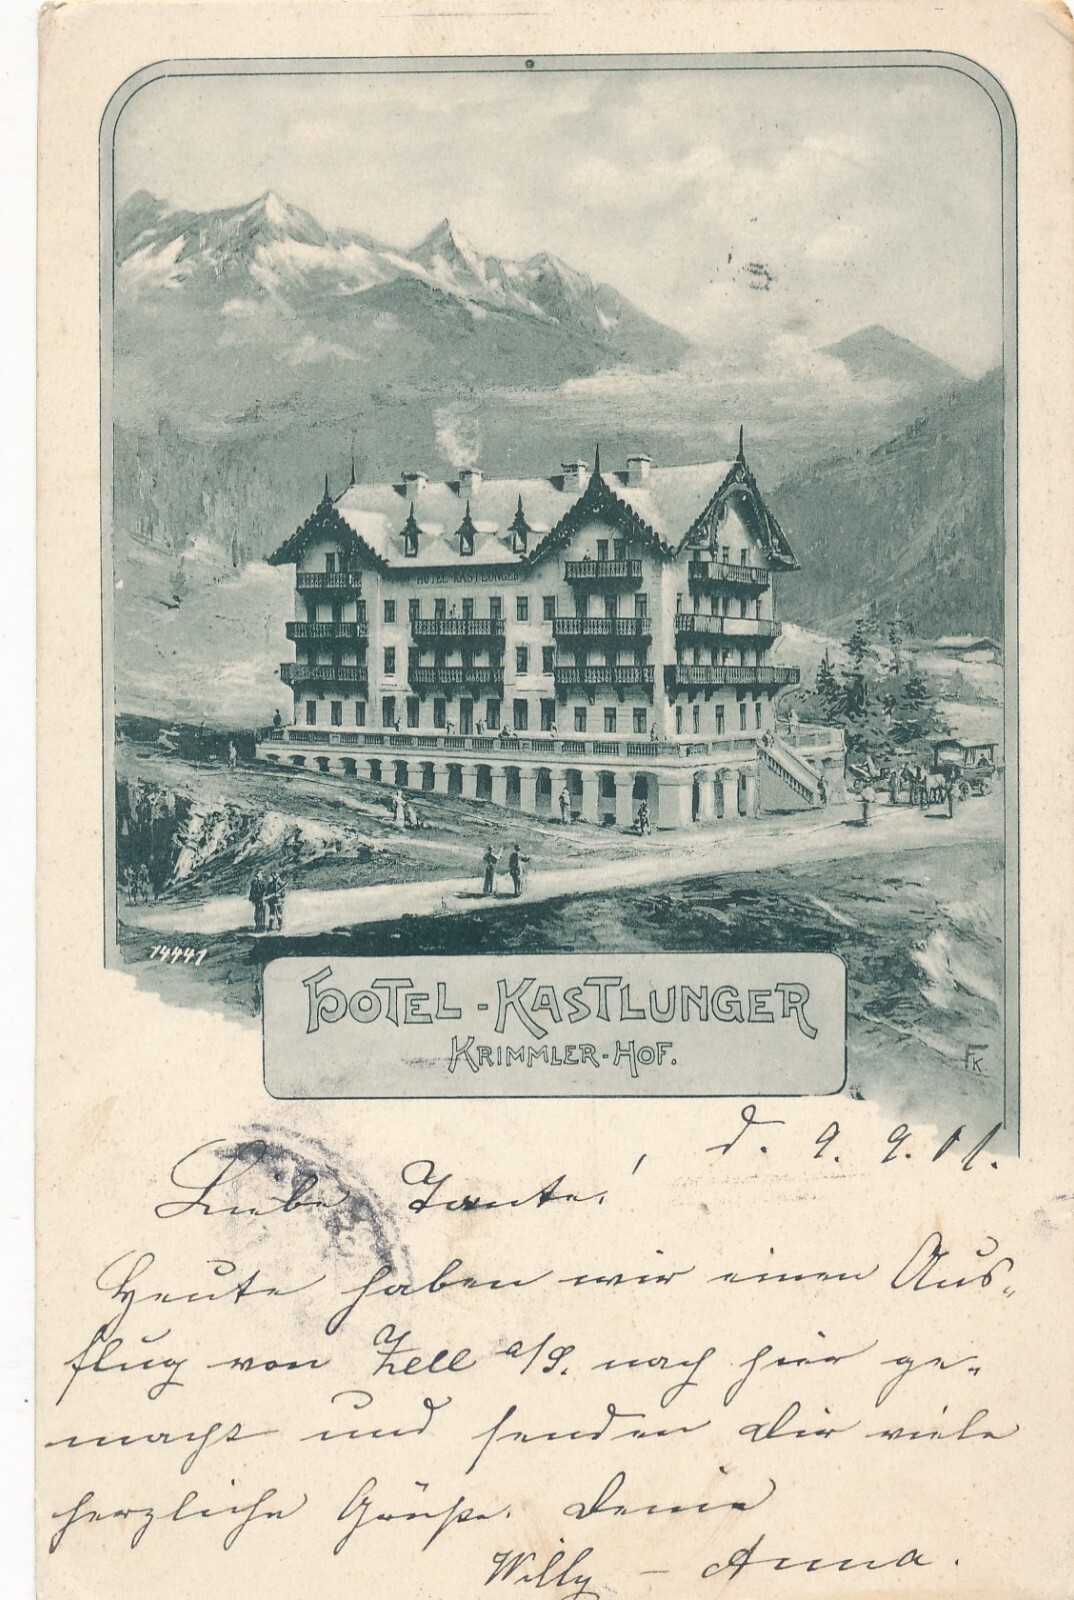 HOTEL KASTLUNGER
14441
HOTEL-KASTLUNGER
KRIMMLER-HOF.
FK
d. 9. 9. 01.
Liebe Tante!
Heute haben wir einen Aus-
flug von Zell a/S. nach hier ge-
macht und senden Dir viele
herzliche Grüße. Deine
Willy – Anna.